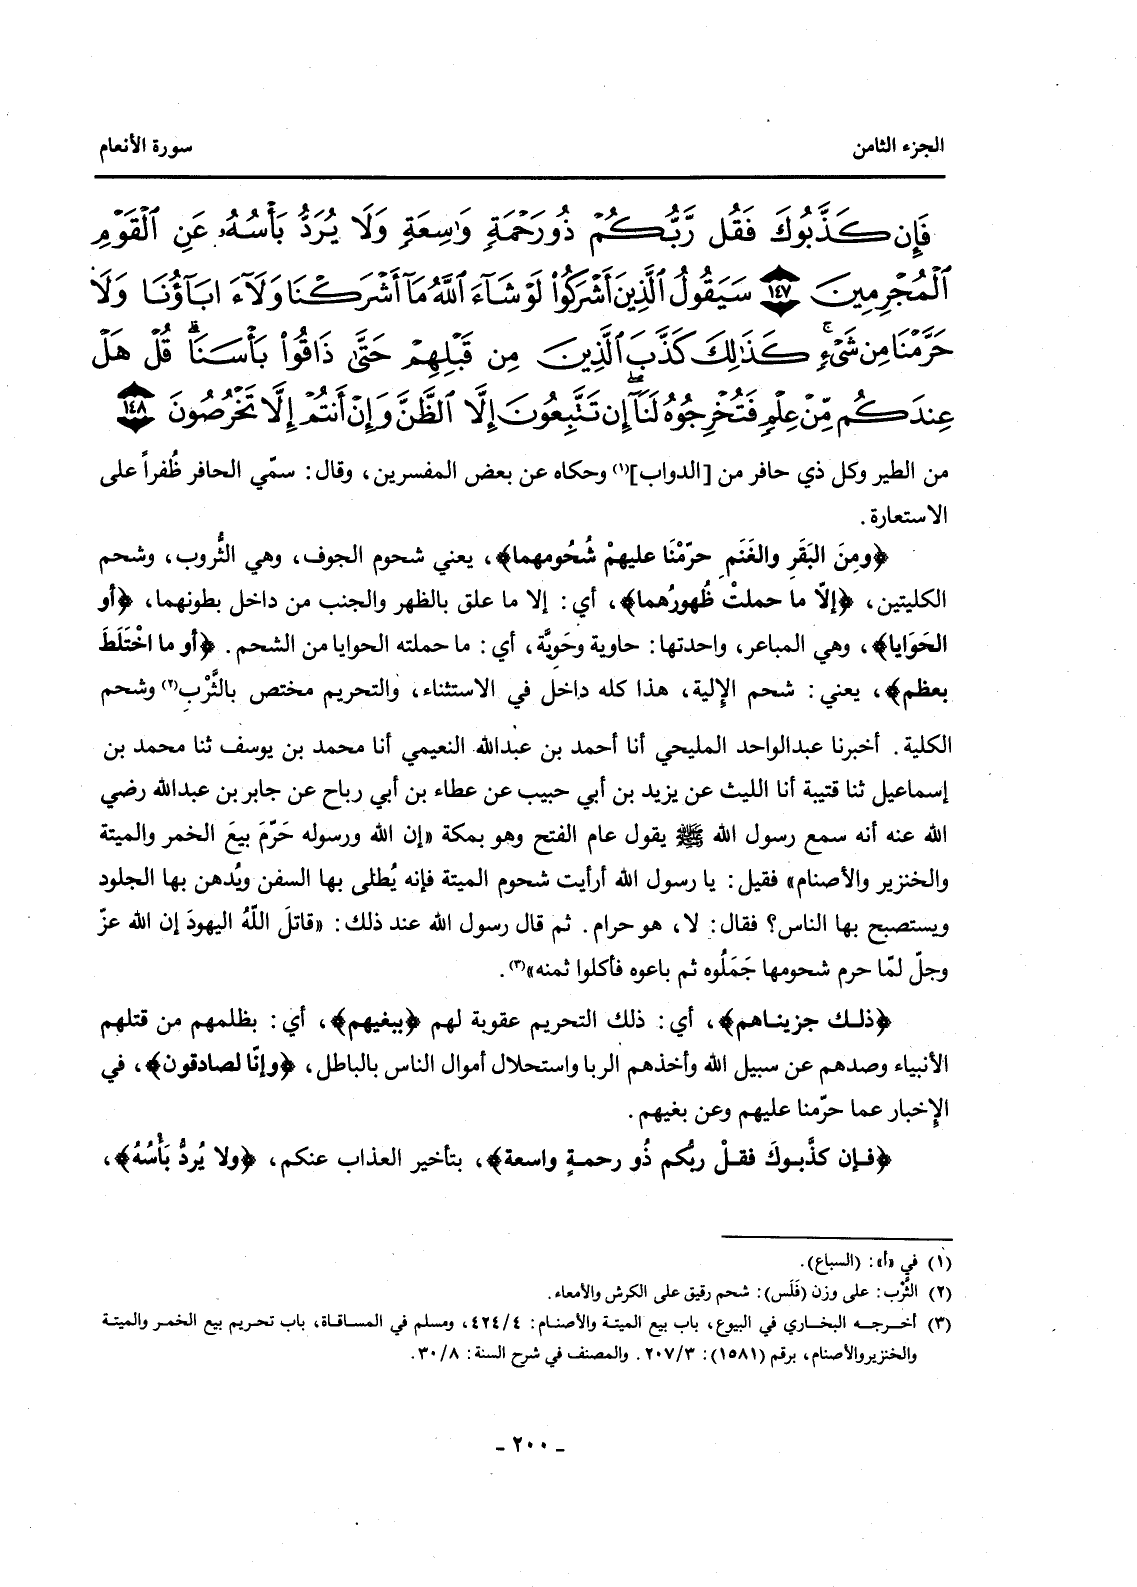 الجزء الثامن
سورة الأنعام
فَإِن كَذَّبُوكَ فَقُل رَّبُّكُمْ ذُو رَحْمَةٍ وَاسِعَةٍ وَلَا يُرَدُّ بَأْسُهُ عَنِ الْقَوْمِ
الْمُجْرِمِينَ ١٤٧ سَيَقُولُ الَّذِينَ أَشْرَكُوا لَوْ شَاءَ اللَّهُ مَا أَشْرَكْنَا وَلَا ءَابَاؤُنَا وَلَا
حَرَّمْنَا مِن شَيْءٍ كَذَلِكَ كَذَّبَ الَّذِينَ مِن قَبْلِهِمْ حَتَّى ذَاقُوا بَأْسَنَا قُلْ هَلْ
عِندَكُم مِّنْ عِلْمٍ فَتُخْرِجُوهُ لَنَا إِن تَتَّبِعُونَ إِلَّا الظَّنَّ وَإِنْ أَنتُمْ إِلَّا تَخْرُصُونَ ١٤٨
من الطير وكل ذي حافر من [الدواب](١) وحكاه عن بعض المفسرين، وقال: سمّي الحافر ظُفراً على
الاستعارة.
﴿ومِنَ البَقَرِ والغَنَمِ حرّمْنَا عليهمْ شُحُومهما﴾، يعني شحوم الجوف، وهي الثُّروب، وشحم
الكليتين، ﴿إلّا ما حملتْ ظُهورُهما﴾، أي: إلا ما علق بالظهر والجنب من داخل بطونهما، ﴿أو
الحَوَايا﴾، وهي المباعر، واحدتها: حاوية وحَوِيَّة، أي: ما حملته الحوايا من الشحم. ﴿أو ما اخْتَلَطَ
بعظم﴾، يعني: شحم الإلية، هذا كله داخل في الاستثناء، والتحريم مختص بالثَّرْبِ(٢) وشحم
الكلية. أخبرنا عبدالواحد المليحي أنا أحمد بن عبدالله النعيمي أنا محمد بن يوسف ثنا محمد بن
إسماعيل ثنا قتيبة أنا الليث عن يزيد بن أبي حبيب عن عطاء بن أبي رباح عن جابر بن عبدالله رضي
الله عنه أنه سمع رسول الله ﷺ يقول عام الفتح وهو بمكة «إن الله ورسوله حَرّمَ بيعَ الخمر والميتة
والخنزير والأصنام» فقيل: يا رسول الله أرأيت شحوم الميتة فإنه يُطلى بها السفن ويُدهن بها الجلود
ويستصبح بها الناس؟ فقال: لا، هو حرام. ثم قال رسول الله عند ذلك: «قاتلَ اللّهُ اليهودَ إن الله عزّ
وجلّ لمّا حرم شحومها جَمَلُوه ثم باعوه فأكلوا ثمنه»(٣).
﴿ذلك جزيناهم﴾، أي: ذلك التحريم عقوبة لهم ﴿ببغيهم﴾، أي: بظلمهم من قتلهم
الأنبياء وصدهم عن سبيل الله وأخذهم الربا واستحلال أموال الناس بالباطل، ﴿وإنّا لصادقون﴾، في
الإخبار عما حرّمنا عليهم وعن بغيهم.
﴿فإن كذَّبوكَ فقلْ ربُّكم ذُو رحمةٍ واسعة﴾، بتأخير العذاب عنكم، ﴿ولا يُردُّ بَأْسُهُ﴾،
(١) في «أ»: (السباع).
(٢) الثَّرْب: على وزن (فَلَس): شحم رقيق على الكرش والأمعاء.
(٣) أخرجه البخاري في البيوع، باب بيع الميتة والأصنام: ٤٢٤/٤، ومسلم في المساقاة، باب تحريم بيع الخمر والميتة
والخنزير والأصنام، برقم (١٥٨١): ٢٠٧/٣. والمصنف في شرح السنة: ٣٠/٨.
- ٢٠٠ -